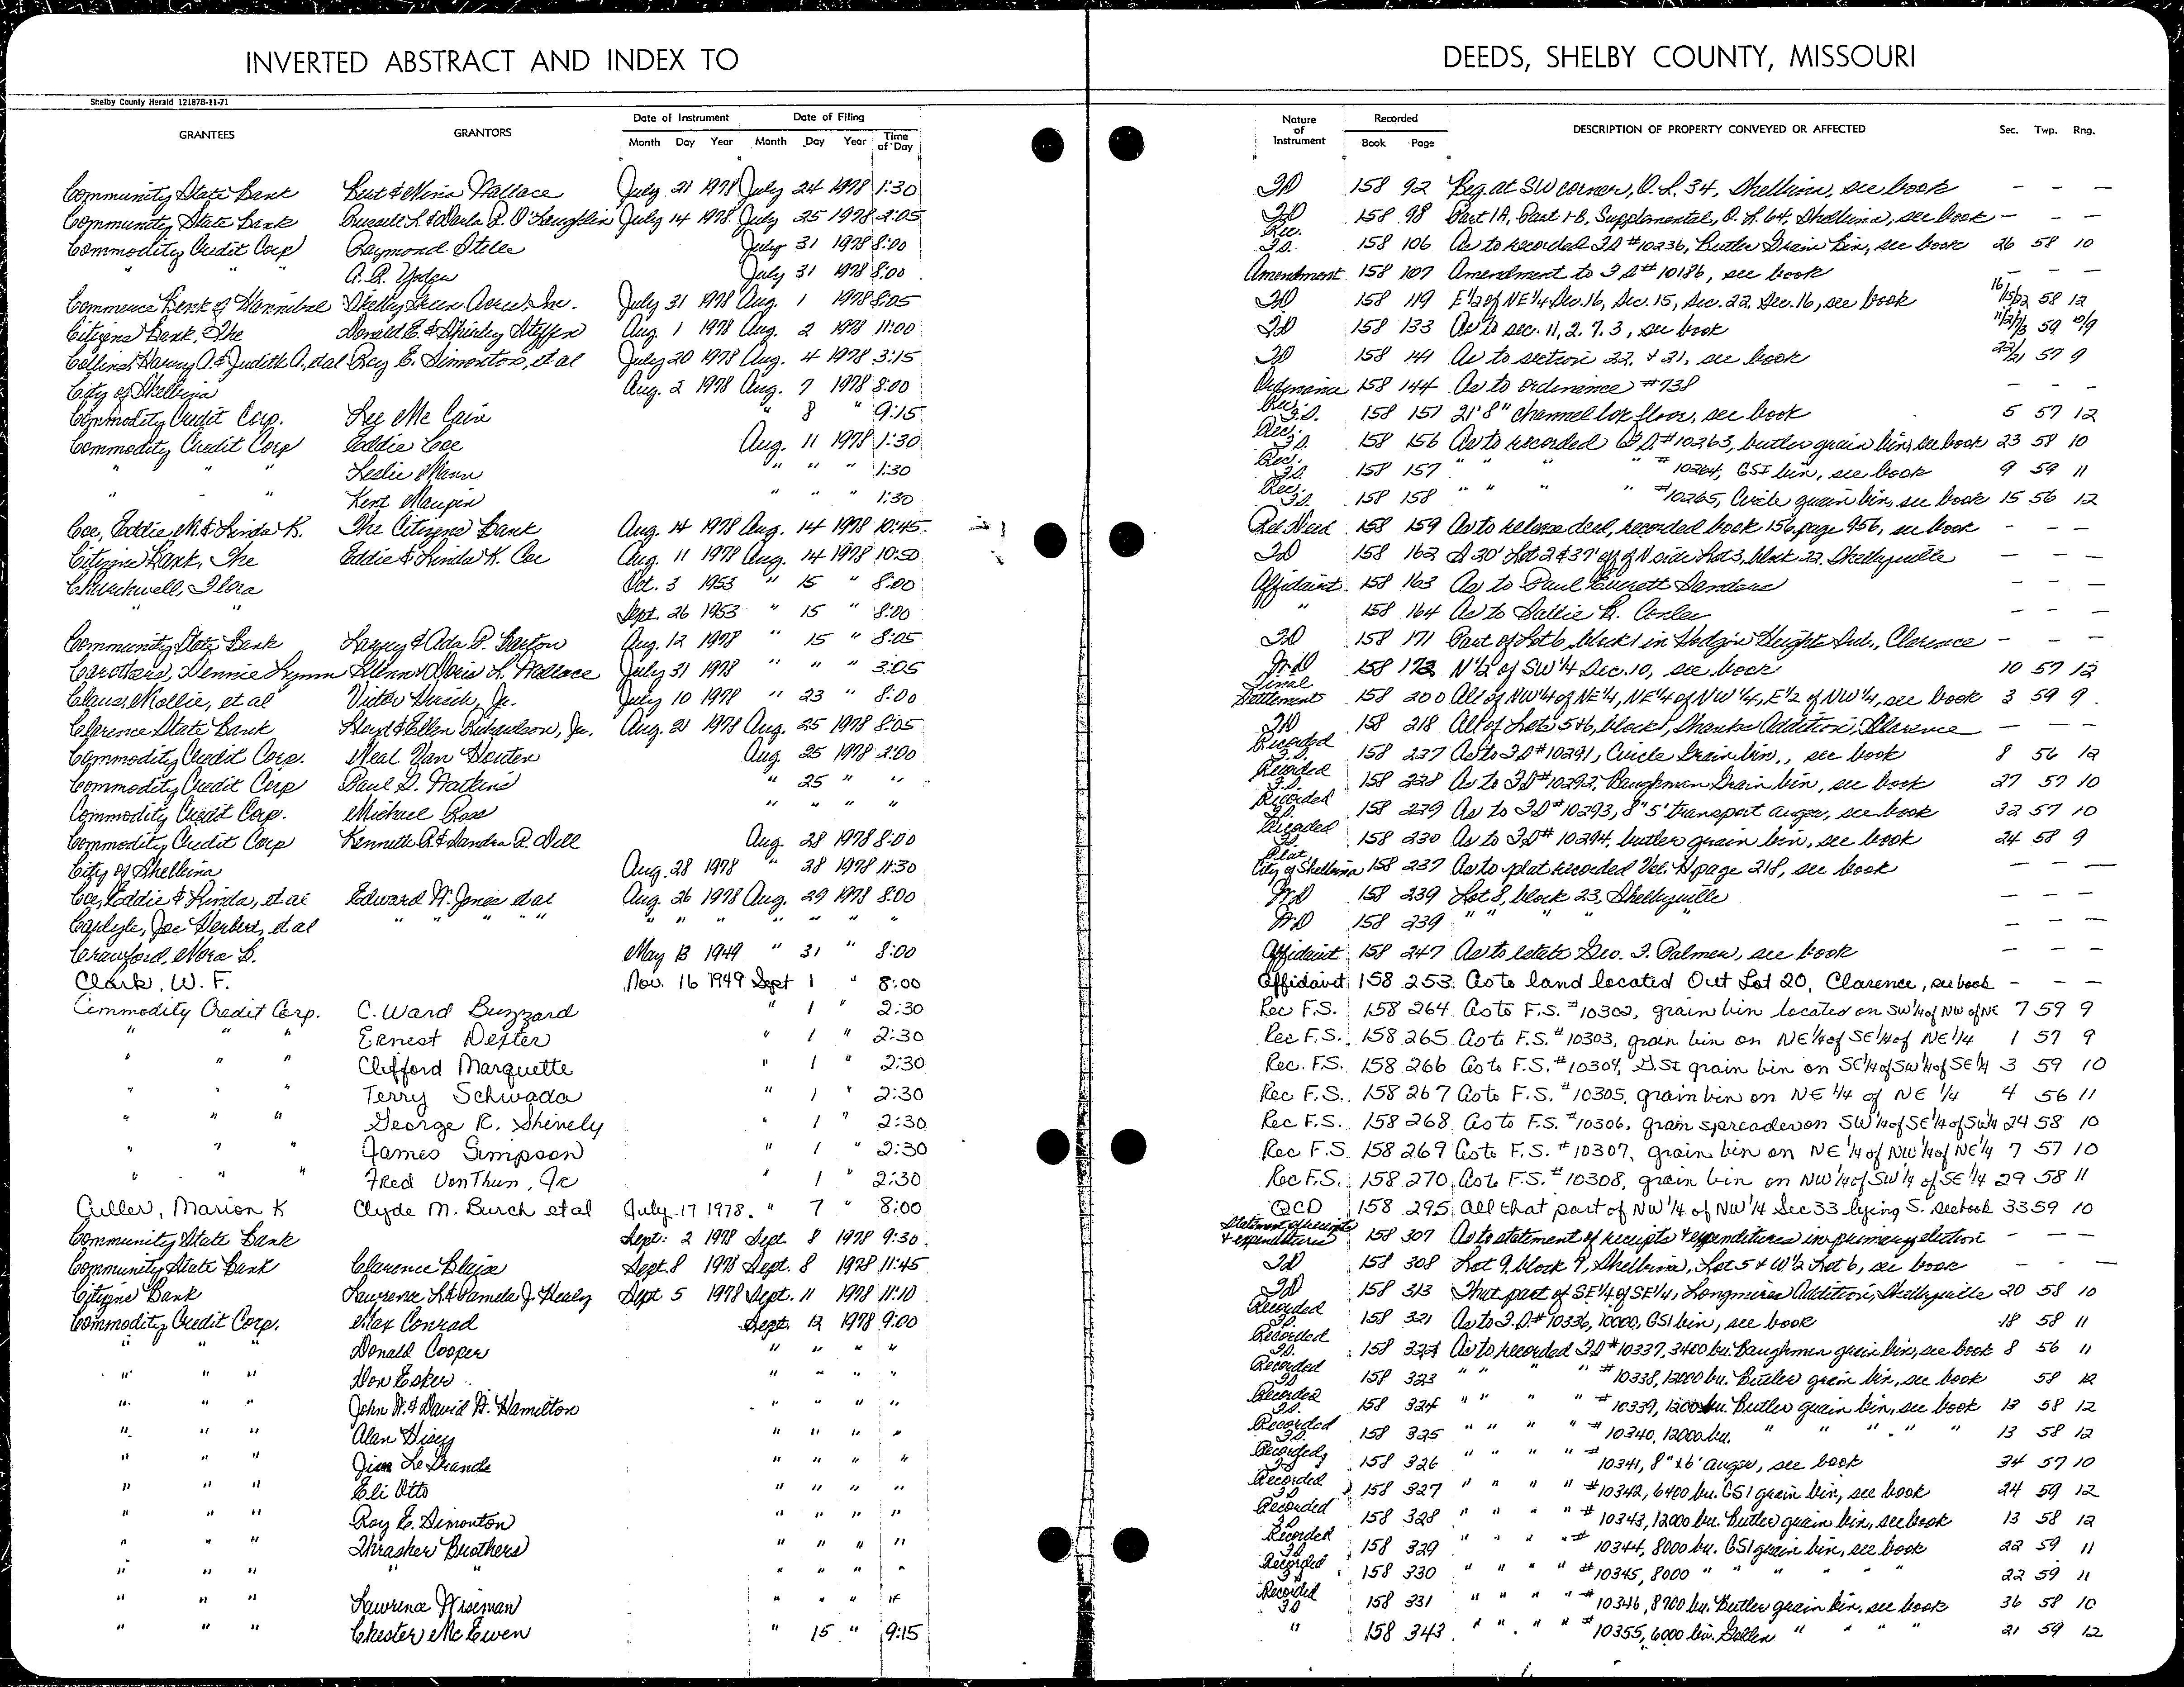 INVERTED ABSTRACT AND INDEX TO DEEDS, SHELBY COUNTY, MISSOURI
Shelby County Herald 12187B-11-71
GRANTEES GRANTORS Date of Instrument Date of Filing Nature of Instrument Recorded DESCRIPTION OF PROPERTY CONVEYED OR AFFECTED Sec. Twp. Rng.
Month Day Year Month Day Year Time of Day Book Page
Community State Bank Bert & Nina Wallace July 21 1978 July 24 1978 1:30 158 92 Beg. at SW corner, O. L. 34, Shelbina, see book — — —
Community State Bank Russell L. & Darla R. O'Laughlin July 14 1978 July 25 1978 2:05 158 98 Part 1A, Part 1-B, Supplmental, O. L. 64, Shelbina, see book — — —
Commodity Credit Corp Raymond July 31 1978 8:00 Rec. 158 106 As to recorded #10236, Butler Grain Bin, see book 26 58 10
" " July 31 1978 8:00 Amendment 158 107 Amendment to #10186, see book — — —
Commerce Bank of Hannibal Shelby Green Acres Inc. July 31 1978 Aug. 1 1978 8:05 158 119 E½ of NE¼ Sec. 16, Sec. 15, Sec. 22, Sec. 16, see book 16/15/22 58 12
Citizens Bank, The Donald E. & Shirley Steffen Aug. 1 1978 Aug. 2 1978 11:00 158 133 As to sec. 11, 2, 7, 3, see book 59 10/9
Collins, Harry A. & Judith A., et al Roy E. Simonton, et al July 20 1978 Aug. 4 1978 3:15 158 141 As to section 22, & 21, see book 22/21 57 9
City of Shelbina Aug. 2 1978 Aug. 7 1978 8:00 Ordinance 158 144 As to ordinence #738 — — —
Commodity Credit Corp. Lee Mc Cain " 8 " 9:15 Rec. 158 151 21' 8" channel lox floor, see book 5 57 12
Commodity Credit Corp Eddie Coe Aug. 11 1978 1:30 Rec. 158 156 As to recorded #10263, butler grain bin, see book 23 58 10
" " " Leslie Mann " " " 1:30 Rec. 158 157 " " " " #10264, GSI bin, see book 9 59 11
" " Kent Maupin " " " 1:30 Rec. 158 158 " " " " #10265, Circle grain bin, see book 15 56 12
Coe, Eddie M. & Linda K. The Citizens Bank Aug. 14 1978 Aug. 14 1978 10:45 Rel Deed 158 159 As to release deed, recorded book 156, page 956, see book — — —
Citizens Bank, The Eddie & Linda K. Coe Aug. 11 1978 Aug. 14 1978 10:50 158 162 S 20' Lot 2 & 37' off of N side Lot 3, block 22, Shelbyville — — —
Flora Oct. 3 1953 " 15 " 8:00 Affidavit 158 163 As to Paul Everett Sanders — — —
" " Sept. 26 1953 " 15 " 8:00 " 158 164 As to Sallie — — —
Community State Bank Larry & Ada P. Barton Aug. 12 1978 " 15 " 8:05 158 171 Part of Lot 6, block 1 in Hodgin Heights Sub., Clarence — — —
Carothers, Dennie Lynn Glenn & Doris L. Wallace July 31 1978 " " " 3:05 WD 158 172 N½ of SW¼ Sec. 10, see book 10 57 12
Claus, Mollie, et al Victor Jr. July 10 1978 " 23 " 8:00 Final Settlement 158 200 All of NW¼ of NE¼, NE¼ of NW¼, E½ of NW¼, see book 3 59 9
Clarence State Bank Lloyd & Ellen Richardson, Jr. Aug. 21 1978 Aug. 25 1978 8:05 158 218 All of Lots 5 & 6, block 1, Shanks Addition, Clarence — — —
Commodity Credit Corp. Neal Van Houten Aug. 25 1978 2:00 Recorded 158 227 As to #10291, Circle Grain bin, see book 8 56 12
Commodity Credit Corp Paul D. Watkins " 25 " " Recorded 158 228 As to #10292, Baughman Grain bin, see book 27 57 10
Commodity Credit Corp. Michael Ross " " " " Recorded 158 229 As to #10293, 8" 5' transport auger, see book 32 57 10
Commodity Credit Corp Kenneth R. & Sandra R. Dell Aug. 28 1978 8:00 Recorded 158 230 As to #10294, butler grain bin, see book 24 58 9
City of Shelbina Aug. 28 1978 " 28 1978 11:30 Plat City of Shelbina 158 237 As to plat recorded Vol. page 218, see book — — —
Coe, Eddie & Linda, et al Edward W. Jones et al Aug. 26 1978 Aug. 29 1978 8:00 WD 158 239 Lot 8, block 23, Shelbyville — — —
Carlyle, Joe Herbert, et al " " " " " " " " " " " WD 158 239 " " " — — —
Crawford, Nora B. May 13 1949 " 31 " 8:00 Affidavit 158 247 As to estate Geo. T. Palmer, see book — — —
Clark, W. F. Nov. 16 1949 Sept 1 " 8:00 Affidavit 158 253 As to land located Out Lot 20, Clarence, see book — — —
Commodity Credit Corp. C. Ward Buzzard " 1 " 2:30 Rec F.S. 158 264 As to F.S. #10302, grain bin located on SW¼ of NW of NE 7 59 9
" " " Ernest Dexter " 1 " 2:30 Rec F.S. 158 265 As to F.S. #10303, grain bin on NE¼ of SE¼ of NE¼ 1 57 9
" " " Clifford Marquette " 1 " 2:30 Rec. F.S. 158 266 As to F.S. #10304, GSI grain bin on SE¼ of SW¼ of SE¼ 3 59 10
" " " Terry Schwada " 1 " 2:30 Rec F.S. 158 267 As to F.S. #10305, grain bin on NE¼ of NE¼ 4 56 11
" " " George R. Shively " 1 " 2:30 Rec F.S. 158 268 As to F.S. #10306, grain spreader on SW¼ of SE¼ of SW¼ 24 58 10
" " " James Simpson " 1 " 2:30 Rec F.S 158 269 As to F.S. #10307, grain bin on NE¼ of NW¼ of NE¼ 7 57 10
" " " Fred VonThun, Jr " 1 " 2:30 Rec F.S. 158 270 As to F.S. #10308, grain bin on NW¼ of SW¼ of SE¼ 29 58 11
Culler, Marion K Clyde M. Burch et al July 17 1978 " 7 " 8:00 QCD 158 295 All that part of NW¼ of NW¼ Sec 33 lying S. see book 33 59 10
Community State Bank Sept. 2 1978 Sept. 8 1978 9:30 Statement of receipts & expenditures 158 307 As to statement of receipts & expenditures in primary election — — —
Community State Bank Clarence Blaise Sept. 8 1978 Sept. 8 1978 11:45 158 308 Lot 9, block 9, Shelbina, Lot 5 & W½ Lot 6, see book — — —
Citizens Bank Lawrence L. & Pamela J. Healy Sept 5 1978 Sept. 11 1978 11:10 158 313 That part of SE¼ of SE¼, Longmires Addition, Shelbyville 20 58 10
Commodity Credit Corp. Max Conrad Sept. 12 1978 9:00 Recorded 158 321 As to #10336, 10000, GSI bin, see book 18 58 11
" " " Donald Cooper " " " " Recorded 158 322 As to recorded #10337, 3400 bu. Baughman grain bin, see book 8 56 11
" " " Don Esker " " " " Recorded 158 323 " " " " #10338, 12000 bu. Butler grain bin, see book 58 12
" " " John W. & David W. Hamilton " " " " Recorded 158 324 " " " " #10339, 12000 bu. Butler grain bin, see book 13 58 12
" " " Alan " " " " Recorded 158 325 " " " " #10340, 12000 bu. " " " " " 13 58 12
" " " Jim Le Grande " " " " Recorded 158 326 " " " " #10341, 8" auger, see book 34 57 10
" " " Eli Otto " " " " Recorded 158 327 " " " " #10342, 6400 bu. GSI grain bin, see book 24 59 12
" " " Roy E. Simonton " " " " Recorded 158 328 " " " " #10343, 12000 bu. Butler grain bin, see book 13 58 12
" " " Thrasher Brothers " " " " Recorded 158 329 " " " " #10344, 8000 bu. GSI grain bin, see book 22 59 11
" " " " " " " " " Recorded 158 330 " " " " #10345, 8000 " " " " " " 22 59 11
" " " Lawrence Wiseman " " " " Recorded 158 331 " " " " #10346, 8700 bu. Butler grain bin, see book 36 58 10
" " " Chester Mc Ewen " 15 " 9:15 " 158 343 " " " " #10355, 6000 bu. " " " " 21 59 12